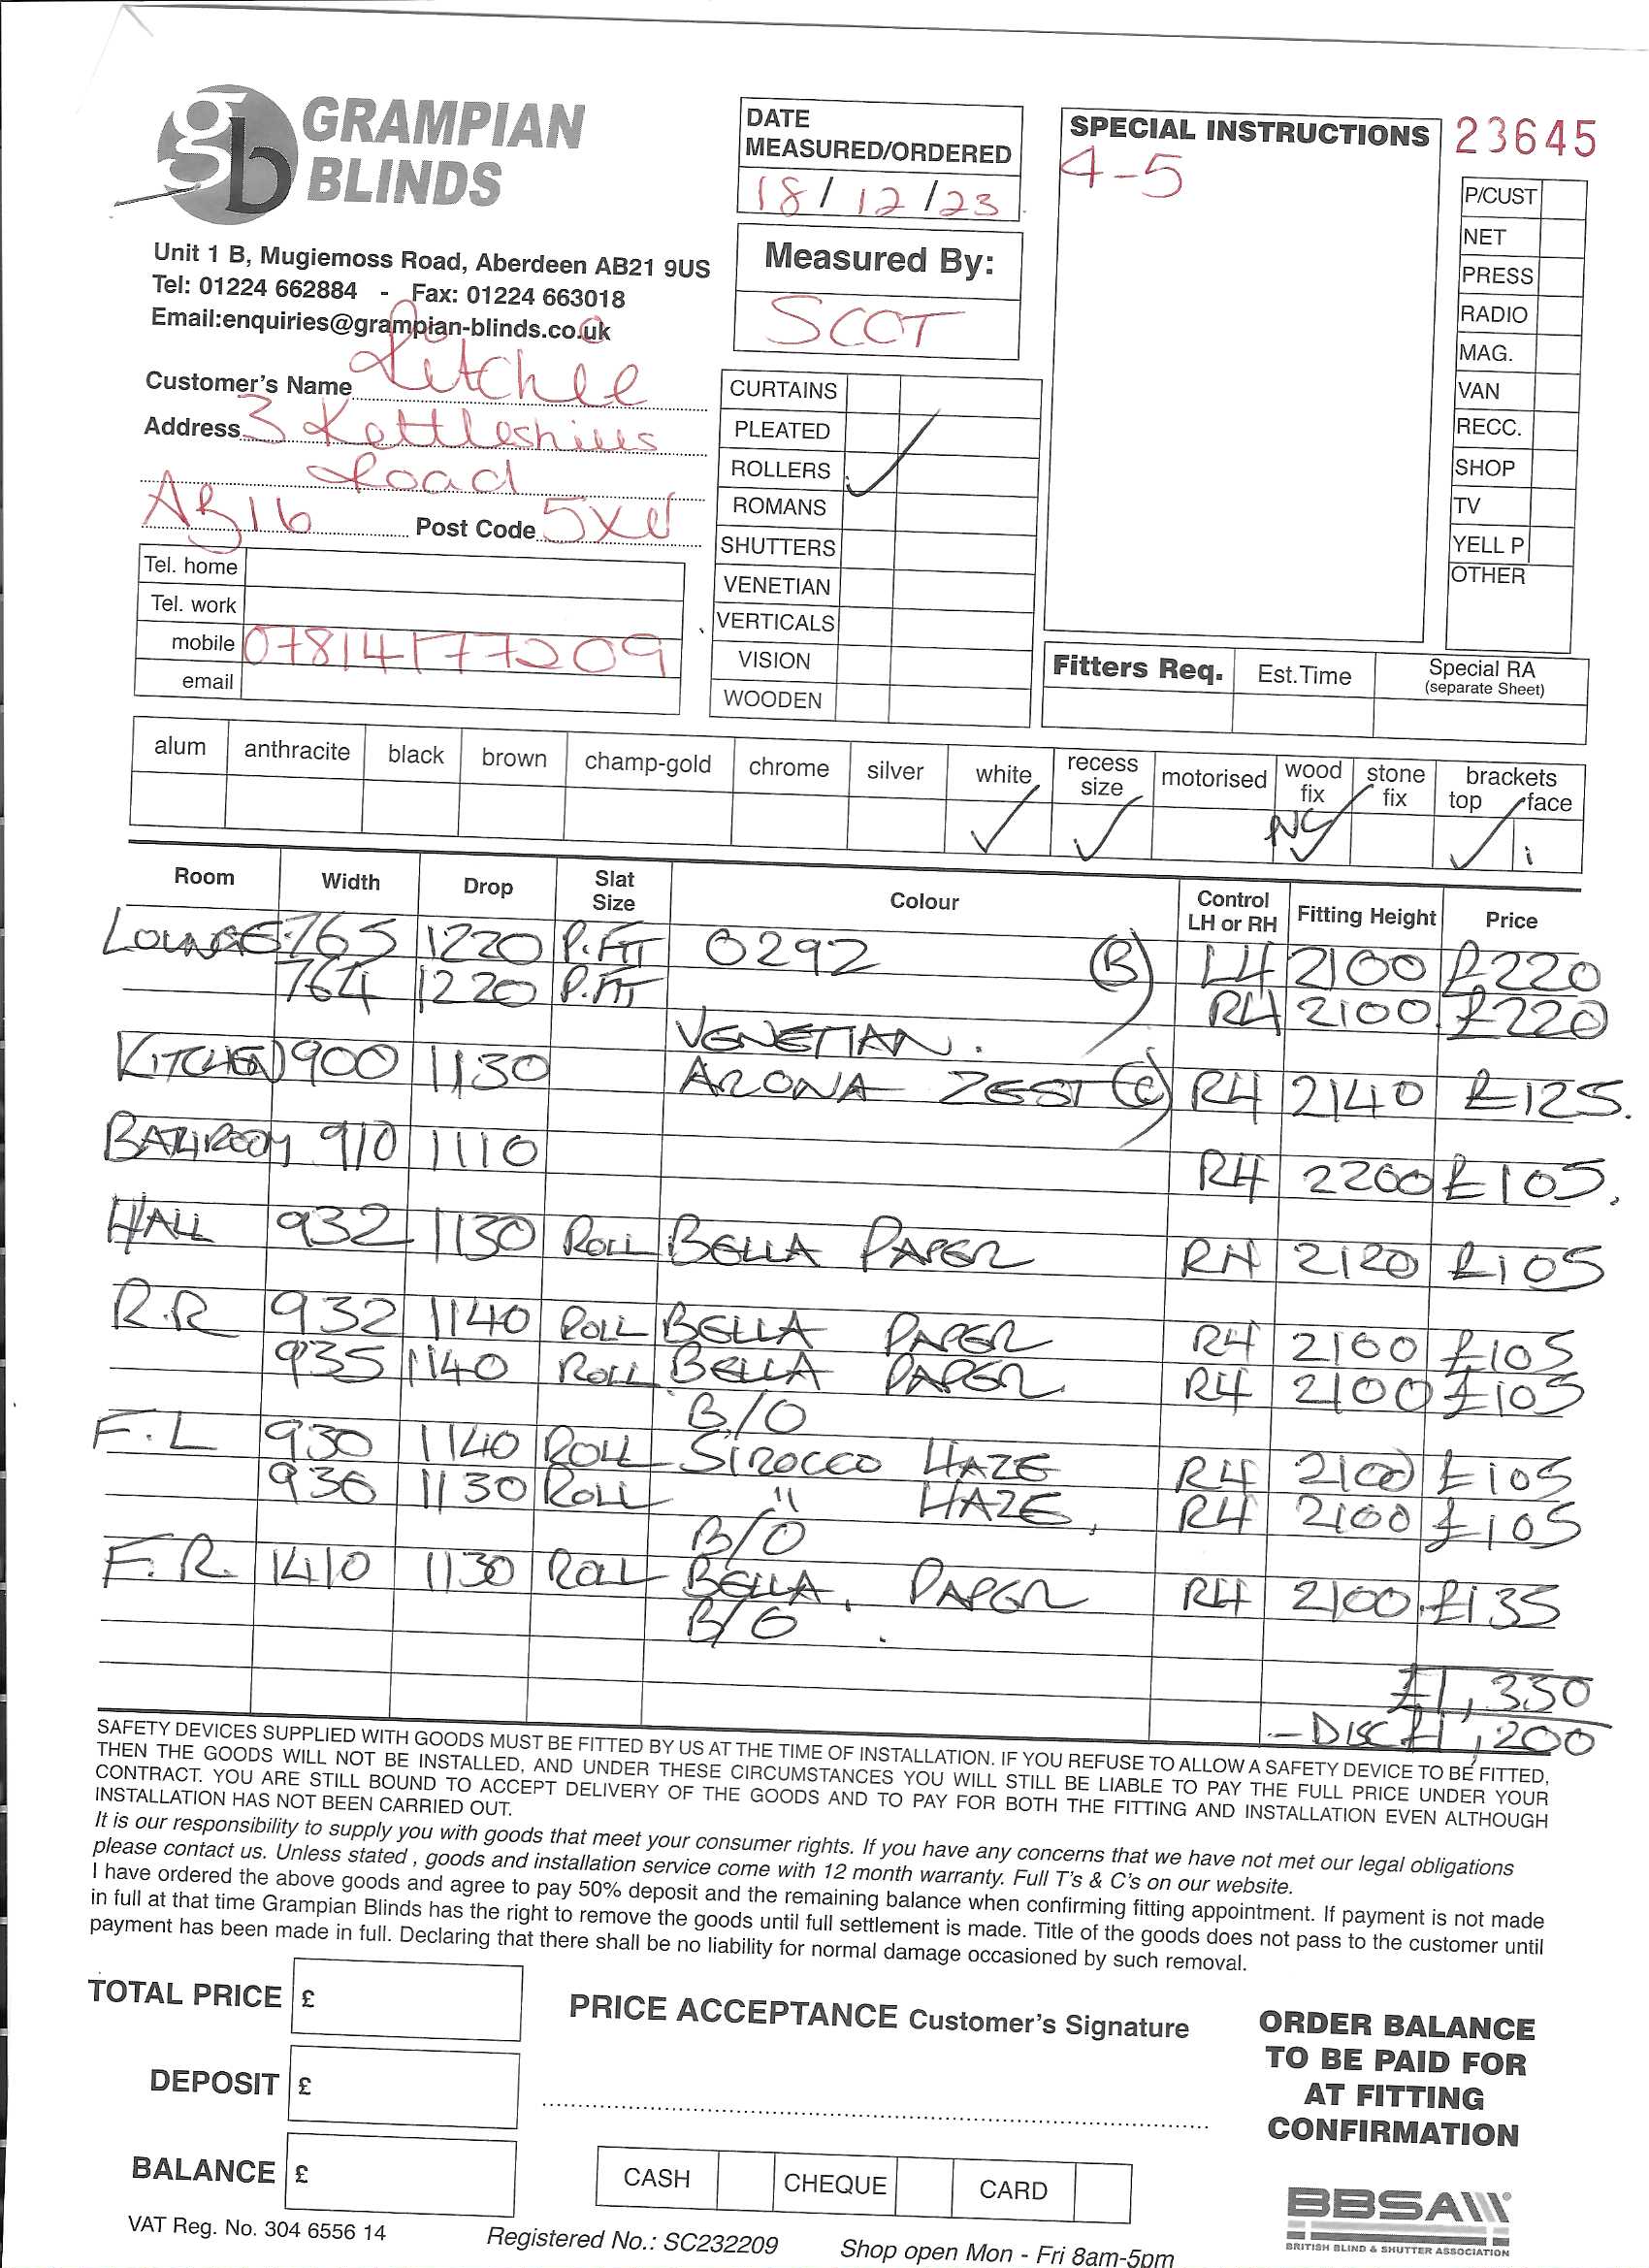 GRAMPIAN
BLINDS
Unit 1 B, Mugiemoss Road, Aberdeen AB21 9US
Tel: 01224 662884 - Fax: 01224 663018
Email:enquiries@grampian-blinds.co.uk
DATE
MEASURED/ORDERED
18/12/23
Measured By:
SCOT
SPECIAL INSTRUCTIONS
4-5
23645
P/CUST
NET
PRESS
RADIO
MAG.
VAN
RECC.
SHOP
TV
YELL P
OTHER
Customer's Name Ritchie
Address 3 Kettleshills
Road
AB16 Post Code 5XU
Tel. home
Tel. work
mobile 07814177209
email
CURTAINS
PLEATED
ROLLERS ✓
ROMANS
SHUTTERS
VENETIAN
VERTICALS
VISION
WOODEN
Fitters Req. Est.Time Special RA
(separate Sheet)
alum anthracite black brown champ-gold chrome silver white ✓ recess size ✓ motorised wood fix stone fix brackets top face
Room Width Drop Slat Size Colour Control LH or RH Fitting Height Price
LOUNGE 765 1220 P.FIT 0292 (B) LH 2100 £220
764 1220 P.FIT RH 2100 £220
VENETIAN.
KITCHEN 900 1130 ARONA ZEST (C) RH 2140 £125.
BATHROOM 910 1110 RH 2200 £105.
HALL 932 1130 ROLL BELLA PAPER RH 2120 £105
R.R 932 1140 ROLL BELLA PAPER RH 2100 £105
935 1140 ROLL BELLA PAPER RH 2100 £105
B/O
F.L 930 1140 ROLL SIROCCO HAZE RH 2100 £105
936 1130 ROLL " HAZE, RH 2100 £105
B/O
F.R. 1410 1130 ROLL BELLA, PAPER RH 2100 £135
B/O
£1,330
- DISC £1,200
SAFETY DEVICES SUPPLIED WITH GOODS MUST BE FITTED BY US AT THE TIME OF INSTALLATION. IF YOU REFUSE TO ALLOW A SAFETY DEVICE TO BE FITTED,
THEN THE GOODS WILL NOT BE INSTALLED, AND UNDER THESE CIRCUMSTANCES YOU WILL STILL BE LIABLE TO PAY THE FULL PRICE UNDER YOUR
CONTRACT. YOU ARE STILL BOUND TO ACCEPT DELIVERY OF THE GOODS AND TO PAY FOR BOTH THE FITTING AND INSTALLATION EVEN ALTHOUGH
INSTALLATION HAS NOT BEEN CARRIED OUT.
It is our responsibility to supply you with goods that meet your consumer rights. If you have any concerns that we have not met our legal obligations
please contact us. Unless stated , goods and installation service come with 12 month warranty. Full T's & C's on our website.
I have ordered the above goods and agree to pay 50% deposit and the remaining balance when confirming fitting appointment. If payment is not made
in full at that time Grampian Blinds has the right to remove the goods until full settlement is made. Title of the goods does not pass to the customer until
payment has been made in full. Declaring that there shall be no liability for normal damage occasioned by such removal.
TOTAL PRICE £
DEPOSIT £
BALANCE £
PRICE ACCEPTANCE Customer's Signature
CASH CHEQUE CARD
ORDER BALANCE
TO BE PAID FOR
AT FITTING
CONFIRMATION
BBSA
BRITISH BLIND & SHUTTER ASSOCIATION
VAT Reg. No. 304 6556 14 Registered No.: SC232209 Shop open Mon - Fri 8am-5pm